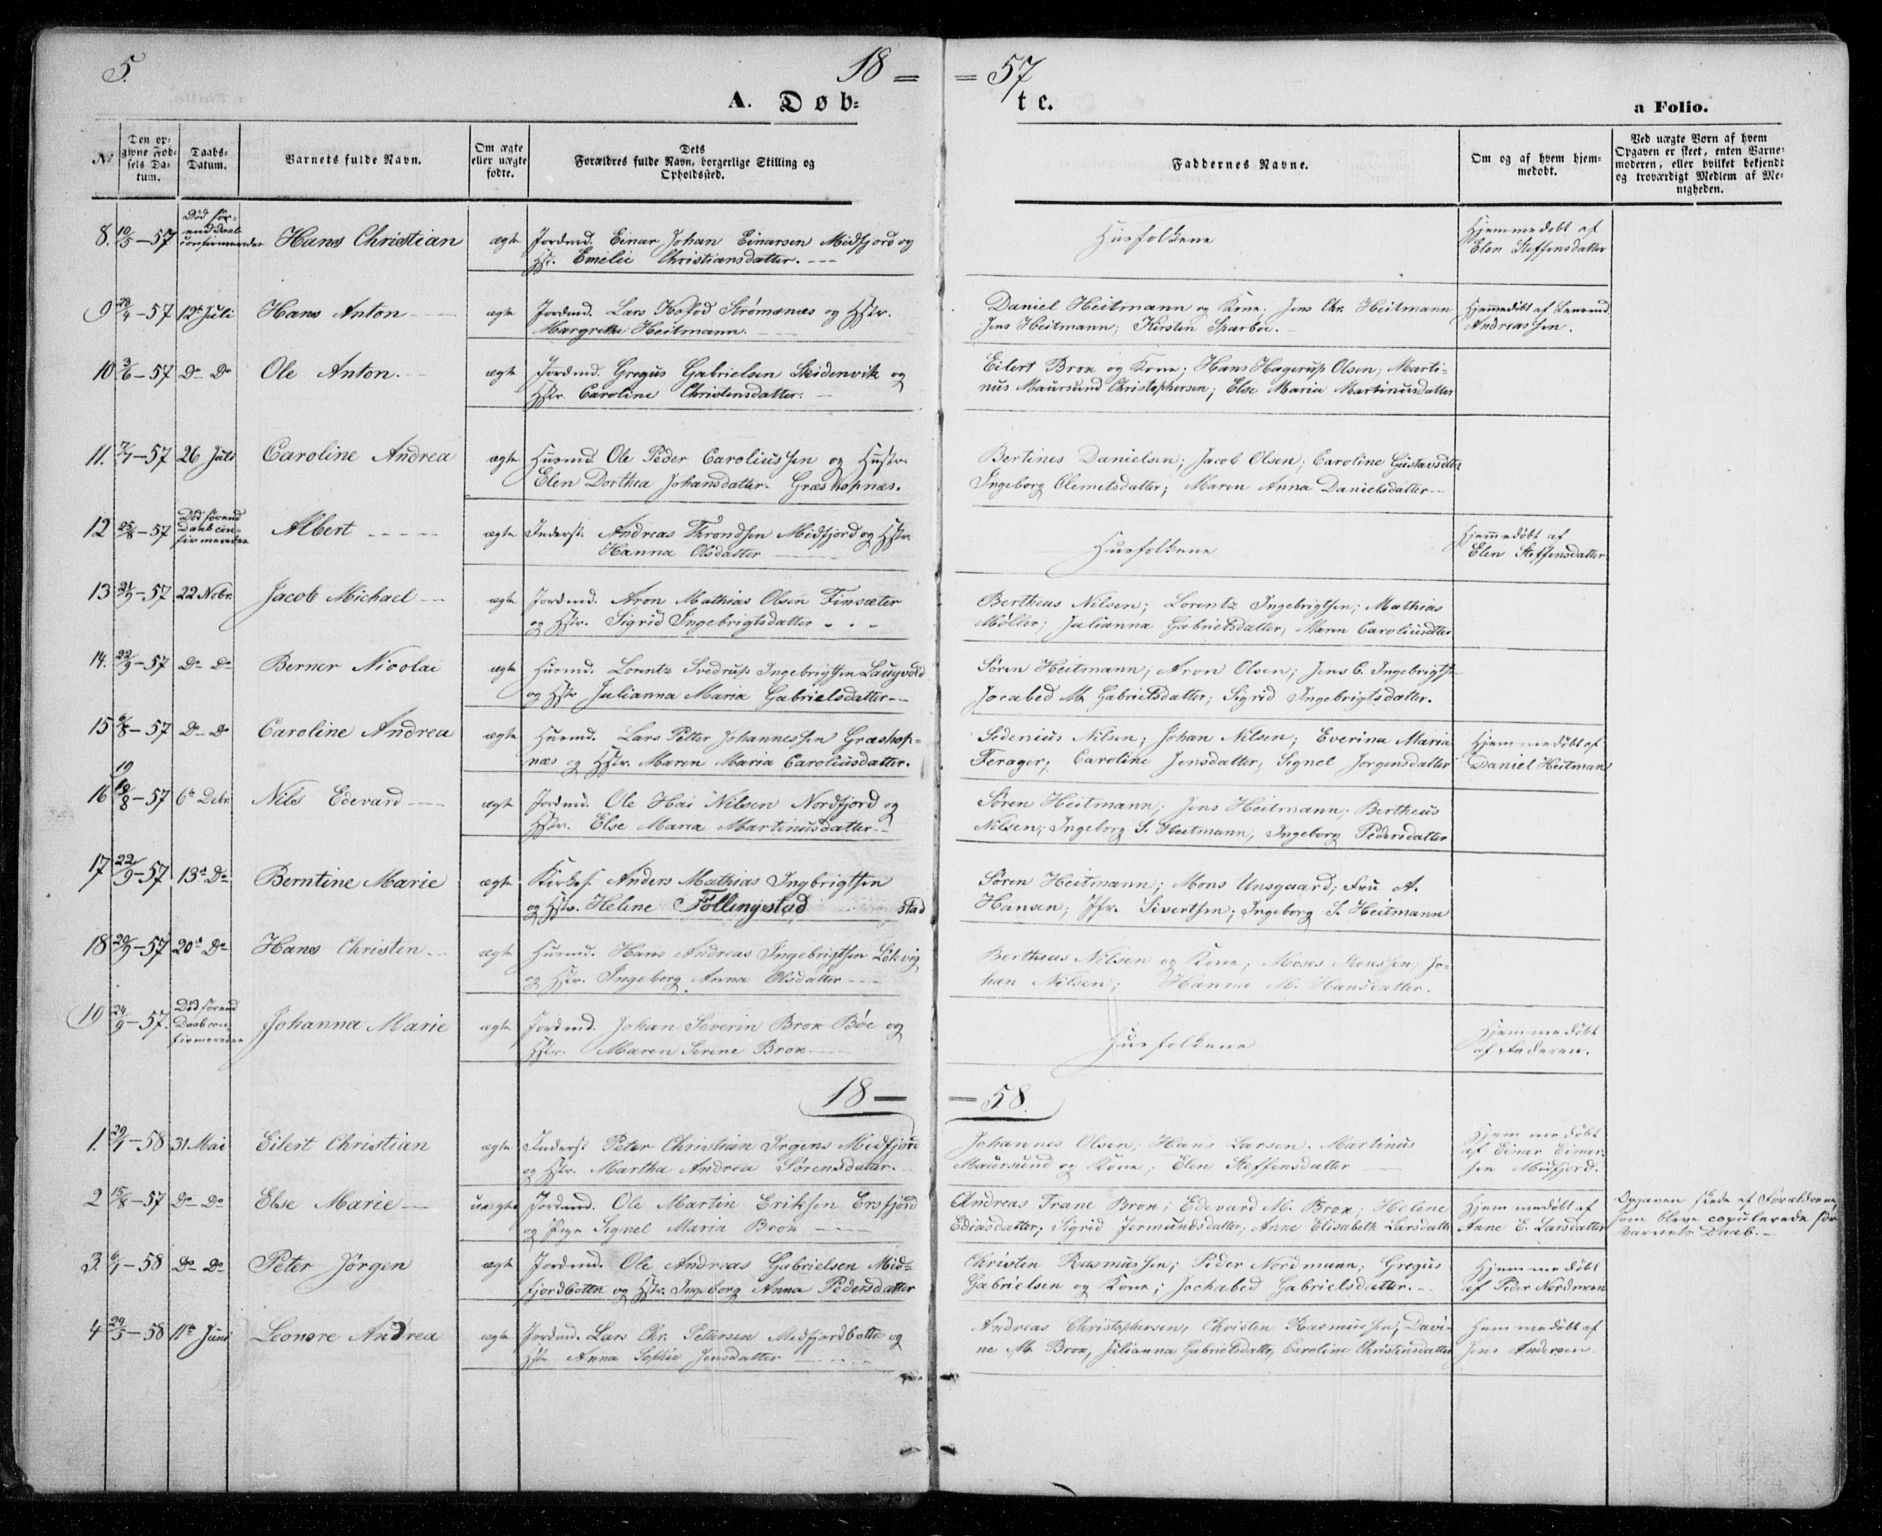 5.
18 = = 57
A. Døb: te.
a Folio.
No.
Den op-
givne Fød-
sels Da-
tum.
Daabs-
Datum.
Barnets fulde Navn.
Om ægte
eller uægte
fødte.
Dets
Forældres fulde Navn, borgerlige Stilling og
Opholdssted.
Faddernes Navne.
Om og af hvem hjem-
medøbt.
Ved uægte Børn af hvem
Opgaven er skeet, enten Barne-
moderen, eller hvilket bekjendt
og troværdigt Medlem af Me-
nigheden.
8. 10/5-57 Død før-
end Daab
confirmeredes Hans Christian ægte Jordmd. Einar Johan Einarsen Midfjord og
Hst. Emelie Christiansdatter. Husfolkene Hjemmedøbt af
Elen Steffensdatter
9 /4-57 12te Juli Hans Anton ægte Jordmd. Lars Kofod Strømsnæs og Hstr.
Margrethe Heitmann. Daniel Heitmann og Kone; Jens Chr. Heitmann
Jens Heitmann; Kirsten Sparboe. Hjemmedøbt af
Andreassen.
10 2/6-57 Do Do Ole Anton. ægte Jordmd. Gregus Gabrielsen Skidenvik og
Hstr. Caroline Christensdatter. Eilert Brox og Kone; Hans Hagerup Olsen; Marti-
nus Maursund Christophersen; Else Maria Martinusdatter
11. 7/7-57 26 Juli Caroline Andrea ægte Husmd. Ole Peder Caroliussen og Hustr.
Elen Dorthea Johansdatter. Græshopnæs. Bertines Danielsen; Jacob Olsen; Caroline Gustavsdtr
Ingeborg Clemetsdatter; Maren Anna Danielsdatter
12 25/8-57 Død førend
Daab con-
firmeredes Albert ægte Inderst. Andreas Throndsen Midfjord og Hstr
Hanna Olsdatter Husfolkene Hjemmedøbt af
Elen Steffensdatter
13 21/9-57 22 Nobr. Jacob Michael ægte Jordmd. Aron Mathias Olsen Finsæter
og Hstr. Sigrid Ingebrigtsdatter Bertheus Nilsen; Lorentz Ingebrigtsen; Mathias
Møller; Julianna Gabrielsdatter; Maren Caroliusdtter
14. 22/9-57 Do Do Berner Nicolai ægte Husmd. Lorentz Svedrup Ingebrigtsen Laugvold
og Hstr Julianna Maria Gabrielsdatter Søren Heitmann; Aron Olsen; Jens C. Ingebrigtsn
Jocabed M. Gabrielsdatter; Sigrid Ingebrigtsdatter.
15 6/8-57 Do Do Caroline Andrea ægte Husmd. Lars Petter Johannessen Græshop-
næs og Hstr. Maren Maria Caroliusdatter. Sedenius Nilsen; Johan Nilsen; Everina Maria
Ferager; Caroline Jensdatter, Signel Jørgensdatter Hjemmedøbt af
Daniel Heitmann
16 19/8-57 6te Debr. Nils Edevard ægte Jordmd. Ole Hai Nilsen Nordfjord og
Hstr. Else Maria Martinusdatter Søren Heitmann; Jens Heitmann; Bertheus
Nilsen; Ingeborg S. Heitmann, Ingeborg Pedersdatter
17 22/9-57 13de Do Berntine Marie ægte Kirkes. Anders Mathias Ingbrigtsen
og Hstr. Heline Follingstad stad Søren Heitmann; Mons Unsgaard; Fru A.
Hansen; Jfr. Sivertsen; Ingeborg S. Heitmann
18 /9-57 20de Do Hans Christen ægte Husmd. Hans Andreas Ingebrigtsen Lekvig
og Hstr. Ingeborg Anna Olsdatter Bertheus Nilsen og Kone; Moses Mosessen; Jo-
han Nilsen; Hanna M. Hansdatter.
19 24/9-57. Død førend
Daab con-
firmeredes Johanna Marie ægte Jordmd. Johan Severin Brox Bøe og
Hstr. Maren Serine Brox Husfolkene Hjemmedøbt
af Faderen.
18 — — 58.
1. 29/1-58 31 Mai Eilert Christian ægte Inderst Peter Christian Irgens Midfjord
og Hstr. Martha Andrea Sørensdatter. Johannes Olsen; Hans Larsen. Martinus
Maursund og Kone; Elen Steffensdatter Hjemmedøbt
af Einar Einar-
sen Midfjord.
2 15/8-57 Do Do Else Marie uægte Jordmd. Ole Martin Eriksen Ersfjord
og Pige Signel Maria Brox Andreas Trane Brox; Edevard M. Brox; Heline
Ediasdatter; Sigrid Jermundsdatter; Anne Elisabeth Larsdatter Hjemmedøbt af
Anne E. Larsdatter Opgaven skede af Forældrene,
som bleve copulerede før
Barnets Daab.
3. 6/1-58 Do Do Peter Jørgen ægte Jordmd. Ole Andreas Gabrielsen Mid-
fjordbotten og Hstr. Ingeborg Anna Pedersdatter Christen Rasmussen; Peder Nordmann; Gregus
Gabrielsen og Kone; Jochabed Gabrielsdatter. Hjemmedøbt
af Peder Nordmann
4 /5-58 11te Juni Leonore Andrea ægte Jordmd. Lars Chr. Pettersen Midfjordbotte og
Hst. Anna Sophie Jensdatter Andreas Christophersen, Christen Rasmussen; Davi-
ne M. Brox, Julianna Gabrielsdatter, Caroline Christensdatter Hjemmedøbt af
Jens Andersen.